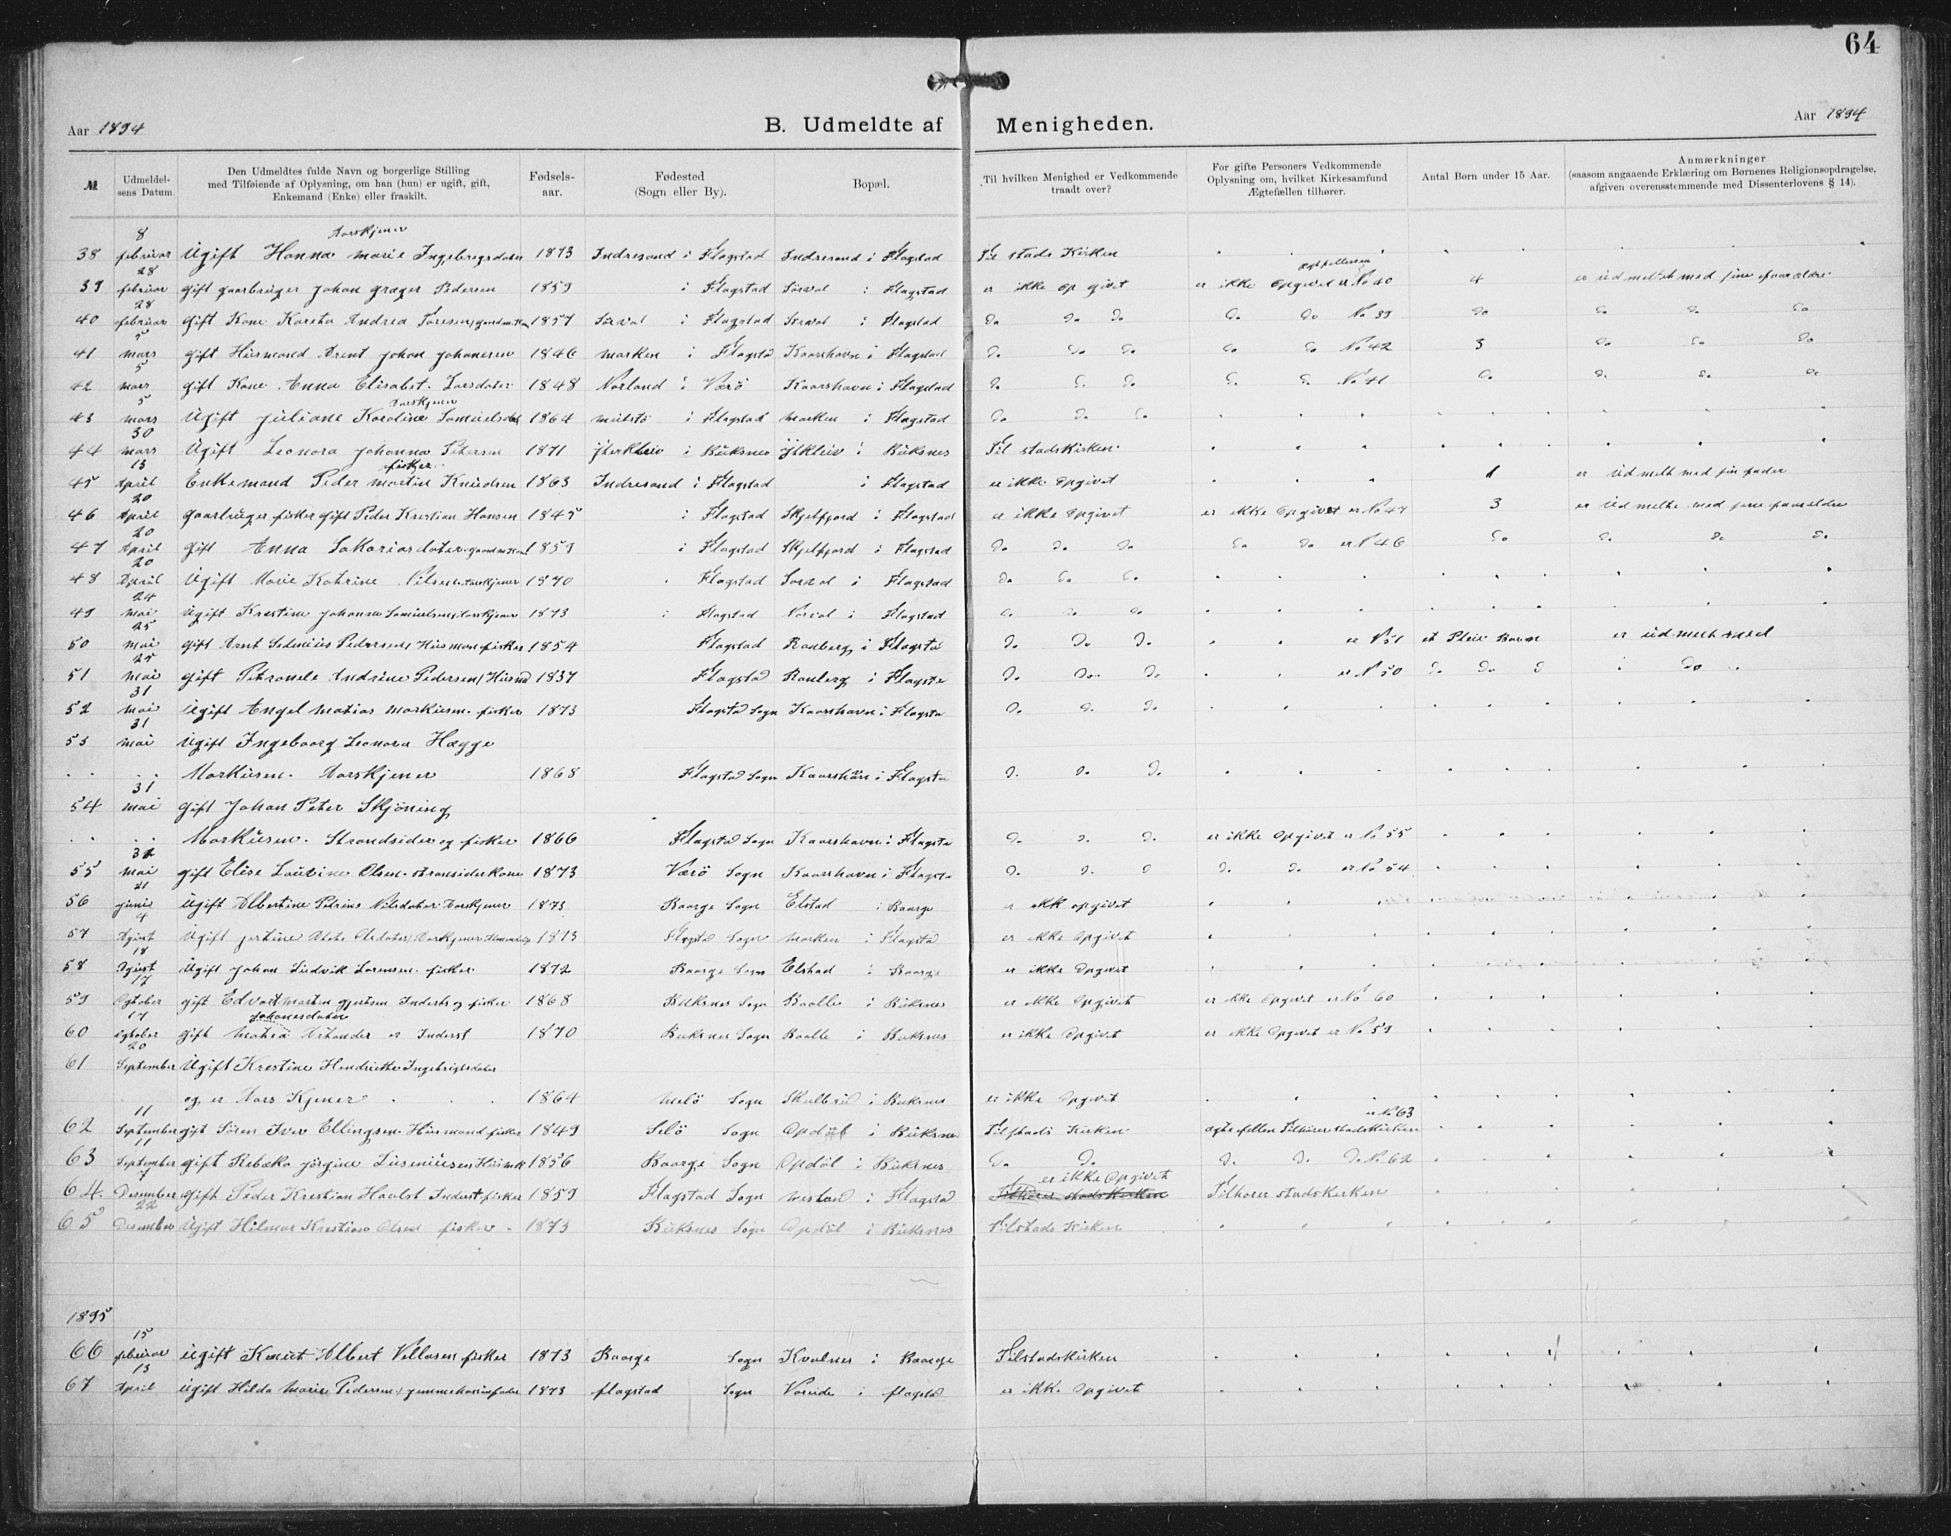 64
Aar 1894 B. Udmeldte af Menigheden. Aar 1894
№ Udmeldelsens Datum. Den Udmeldtes fulde Navn og borgerlige Stilling med Tilføiende af Oplysning, om han (hun) er ugift, gift, Enkemand (Enke) eller fraskilt. Fødselsaar. Fødested (Sogn eller By). Bopæl. Til hvilken Menighed er Vedkommende traadt over? For gifte Personers Vedkommende Oplysning om, hvilket Kirkesamfund Ægtefællen tilhører. Antal Børn under 15 Aar. Anmærkninger (saasom angaaende Erklæring om Børnenes Religionsopdragelse, afgiven overensstemmende med Dissenterlovens § 14).
38 8 februar Ugift Hanna Marie Ingebregsdater Aarskjener 1873 Indresand i Flagstad Indresand i Flagstad Til stads Kirken
39 28 februar gift gaarbruger Johan græger Pedersen 1859 i Flagstad Sørval i Flagstad er ikke op givet er ikke Opgivet er No 40 4 er ud meldt med sine foraældre
40 28 februar gift Kone Karita Andrea 1857 Sørval i Flagstad Sørval i Flagstad Do Do Do Do Do No 39 Do Do Do Do
41 5 mars gift Husmand Arent Johan Johansen 1846 marken i Flagsta Kaarshavn i Flagstad Do Do Do Do Do No 42 3 Do Do Do
42 5 mars gift Kone Anna Elisabet Larsdater 1848 Norland i Værö Kaarshavn i Flagstad Do Do Do Do Do No 41 Do Do Do Do
43 5 mars Ugift Juliane Karoline Samuelsdat Aarskjener 1864 i Flagstad marken i Flagstad Do Do Do
44 30 mars Ugift Leonora Johanna Petersen 1871 i Buksnes i Buksnes Til stadskirken
45 13 April Enkemand Peder martin Knudsen fisker 1863 Indresand i Flagstad i Flagstad er ikke Opgivet 1 er Udmelt med sin fader
46 20 April gaarbruger fisker gift Peder Kristian Hansen 1845 i Flagstad Skjelfjord i Flagstad er ikke Opgivet er ikke Opgivet er No 47 3 er Udmelte med
47 20 April gift Anna Sakariasdater 1859 i Flagstad Skjelfjord i Flagstad Do Do Do Do Do er No 46 Do Do Do Do
48 20 April Ugift Marie Katrine Nilsen Aarskjener 1870 Flagstad Sørval i Flagstad Do Do Do
49 24 mai Ugift Krestine Johanna Samuelsen Aarskjener 1873 i Flagstad i Flagstad Do Do Do
50 25 mai gift Arnt Pedersen Husman fisker 1854 Flagstad Ranberg i Flagsta Do Do Do er No 51 et Pleie Barn er udmelt
51 25 mai gift Petronele Andrine Pedersen 1837 Flagstad Ranberg i Flagsta Do Do Do er No 50 Do Do Do Do
52 31 mai Ugift Angel Matias Markusen fisker 1873 Flagstad Sogn Kaarshavn i Flagsta Do Do Do
53 31 mai Ugift Ingeboorg Leonora Hægge
Markusen. Aarskjener 1868 Flagstad Sogn Kaarshavn i Flagsta Do Do Do
54 31 mai gift Johan Peter Skjöning
Markusen. Strandsider og fisker 1866 Flagstad Sogn Kaarshavn i Flagsta Do Do Do er ikke Opgivet er No 55
55 31 mai gift Elise Olsen 1873 Værö Sogn Kaarshavn i Flagsta Do Do Do Do Do er No 54
56 21 junie Ugift Albertine Petrine Nilsdater Aarskjener 1873 Baarge Sogn Elstad i Baarge er ikk opgivet
57 4 Ugift 1873 Flagstad Sogn marken i Flagstad er ikke Opgivet
58 18 Ugift Johan Ludvik Lorensen fisker 1872 Baarge Sogn Elstad i Baarge er ikke Opgivet
59 17 Ogtober gift Edvart martin gjertsen Inderst og fisker 1868 Buksnes Sogn Baalle i Buksnes er ikke Opgivet er ikke Opgivet er No 60
60 17 Ogtober gift Johanesdater er Inderst 1870 Buksnes Sogn Baalle i Buksnes er ikke Opgivet er ikke Opgivet er No 59
61 20 September Ugift Krestine Hendriette Ingebrigtsdater
og er Aars Kjener 1864 Sogn i Buksnes er ikke Opgivet
62 11 September gift Sören Iver Ellingsen Husmand fisker 1849 Sogn Opdöl i Buksnes Tilstads Kirken er No 63 Tilhörer stadskirken
63 11 September gift Rebeka Jörgine 1856 Baarge Sogn Opdöl i Buksnes Do Do Do Do Do No 62
64. 7 Desember gift Peder Kristian Inderst fisker 1859 Flagstad Sogn i Flagstad er ikke Opgivet Tilhører stadskirken Tilhorer stadskirken
65 22 Desember Ugift Hilmar Kristian Olsen fisker 1873 Buksnes Sogn Opdöl i Buksnes Tilstads Kirken
1895
66 15 februar Ugift Knut Albert Villasen fisker 1873 Baarge Sogn Kvalnes i Baarge Tilstadskirken
67 13 April Ugift Hilda Marie Pedersen 1873 flagstad Sogn i flagstad er ikke Opgivet